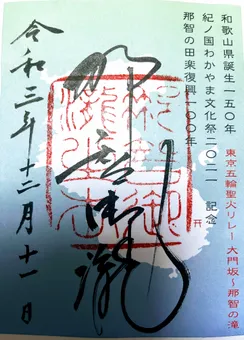 和歌山県誕生一五〇年
東京五輪聖火リレー 大門坂～那智の滝
紀ノ国わかやま文化祭二〇二一 記念
那智の田楽復興一〇〇年
那智御瀧
令和三年十二月十一日